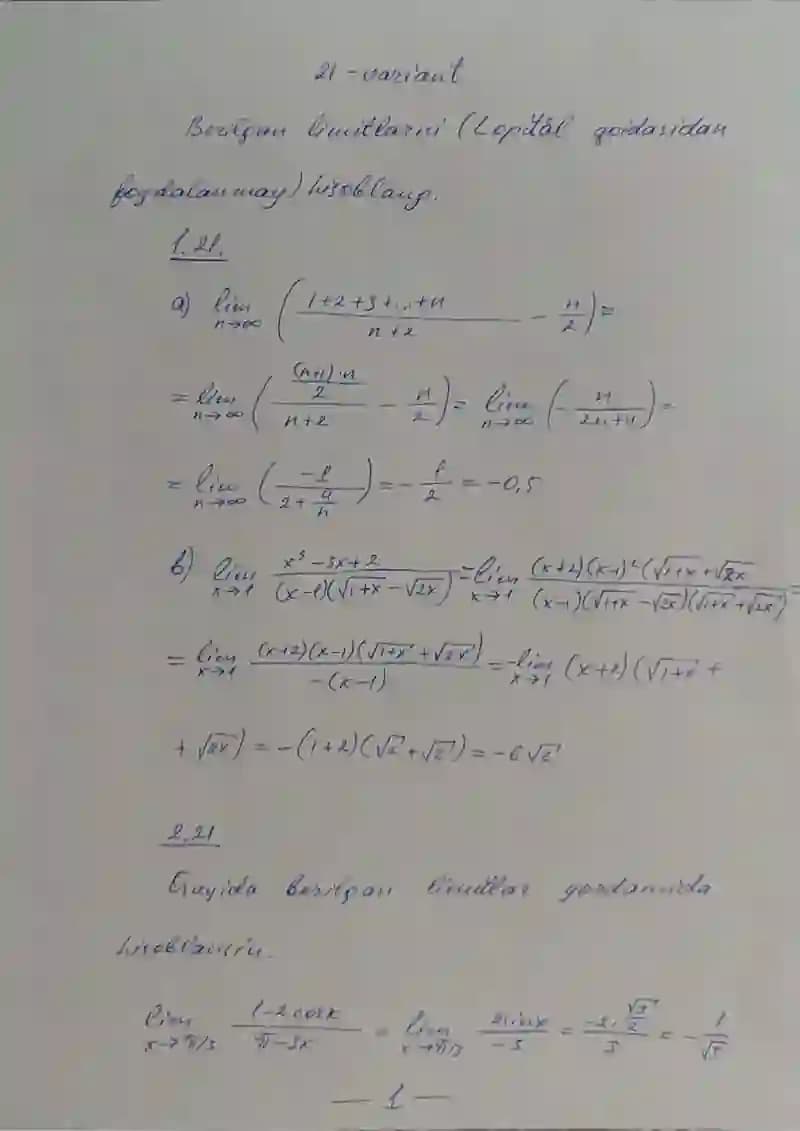 21-variant
Berilgan limitlarni (Lopital qoidasidan
foydalanmay) hisoblang.
1.21.
a) lim n→∞ ( (1+2+3+...+n)/(n+2) − n/2 ) =
= lim n→∞ ( ((n+1)·n/2)/(n+2) − n/2 ) = lim n→∞ ( − n/(2n+4) ) =
= lim n→∞ ( −1/(2+4/n) ) = − 1/2 = −0,5
b) lim x→1 (x³−3x+2)/((x−1)(√1+x − √2x)) = lim x→1 ((x+2)(x−1)²(√1+x + √2x)/((x−1)(√1+x − √2x)(√1+x + √2x)) =
= lim x→1 ((x+2)(x−1)(√1+x + √2x))/(−(x−1)) = −lim x→1 (x+2)(√1+x +
+ √2x) = −(1+2)(√2 + √2) = −6√2
2.21
Quyida berilgan limitlar yordamida
hisoblansin.
lim x→π/3 (1−2cosx)/(π−3x) = lim x→π/3 (2sinx)/(−3) = (−2·√3/2)/3 = − 1/√3
— 1 —